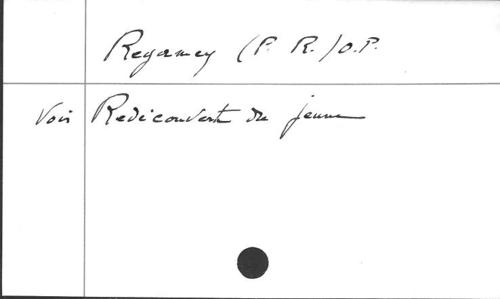 Regamey (P. R.) O.P.
Voir Redécouverte du jeune